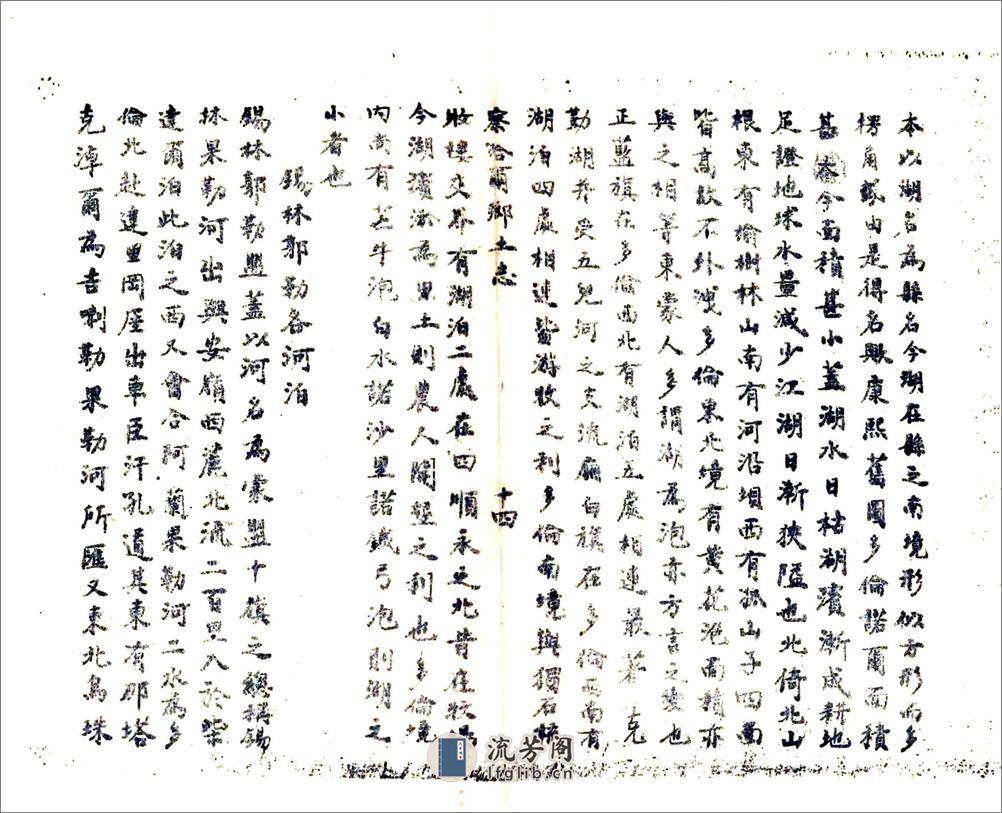 本以湖名為縣名今湖在縣之南境形似方形而多
楞角或由是得名歟康熙舊圖多倫諾爾面積
甚大今面積甚小蓋湖水日枯湖濱漸成耕地
足證地球水量減少江湖日漸狹隘也北倚北山
根東有榆樹林山南有河沿壩西有孤山子四面
皆高故不外洩多倫東北境有黃花泡面積亦
與之相等東蒙人多謂湖為泡亦方言之變也
正藍旗在多倫西北有湖泊五處相連最著克
勤湖並受五兒河之支流廂白旗在多倫西南有
湖泊四處相連皆游牧之利多倫南境與獨石
察哈爾鄉土志 十四
牧場交界有湖泊二處在四順永之北昔在牧
今湖濱淤為黑土則農人開墾之利也多倫境
內尚有芒牛泡白水諾沙里諾鐵弓泡則湖之
小者也
錫林郭勒各河泊
錫林郭勒盟蓋以河名為蒙盟十旗之總稱錫
林果勒河出興安嶺西麓北流二百里入於柴
達爾泊此泊之西又會合阿蘭果勒河二水為多
倫北赴達里岡厓出車臣汗孔道其東有那塔
克淖爾為吉喇勒果勒河所匯又東北烏珠
流芳阁
lfglib.cn